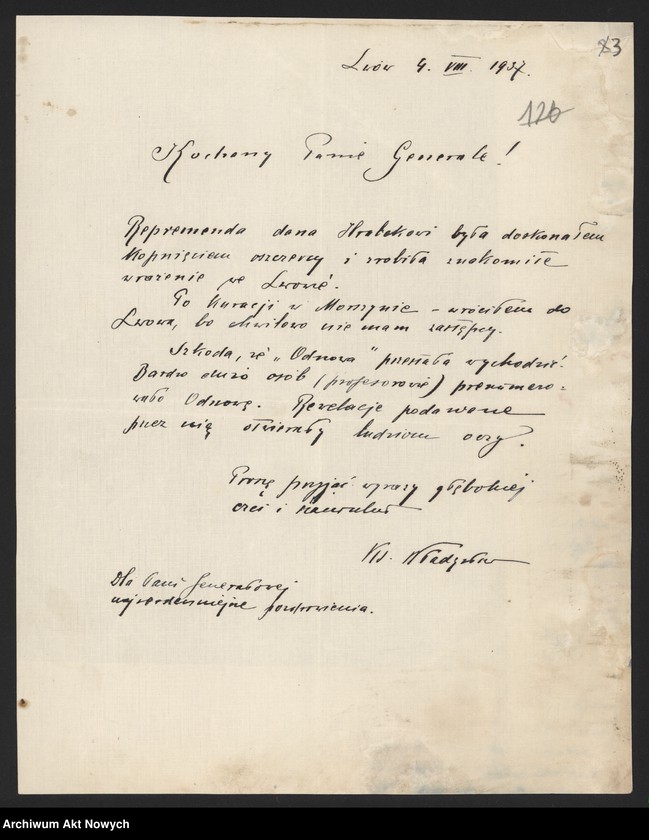 83
Lwów 4. VIII. 1937.
126
Kochany Panie Generale!
Repremenda dana Hrabykowi była doskonałem
kopnięciem oszczercy i zrobiła znakomite
wrażenie we Lwowie.
Po kuracji w Morszynie – wróciłem do
Lwowa, bo chwilowo nie mam zastępcy.
Szkoda, że „Odnowa" przestała wychodzić.
Bardzo dużo osób (profesorowie) prenumero-
wało Odnowę. Rewelacje podawane
przez nią otwierały ludziom oczy.
Proszę przyjąć wyrazy głębokiej
czci i
Ks. Władysław
Dla Pani Generałowej
najserdeczniejsze pozdrowienia.
Archiwum Akt Nowych